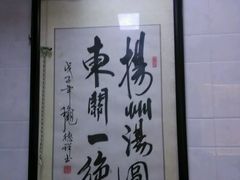 楊州湯圓
東關一絕
戊子年